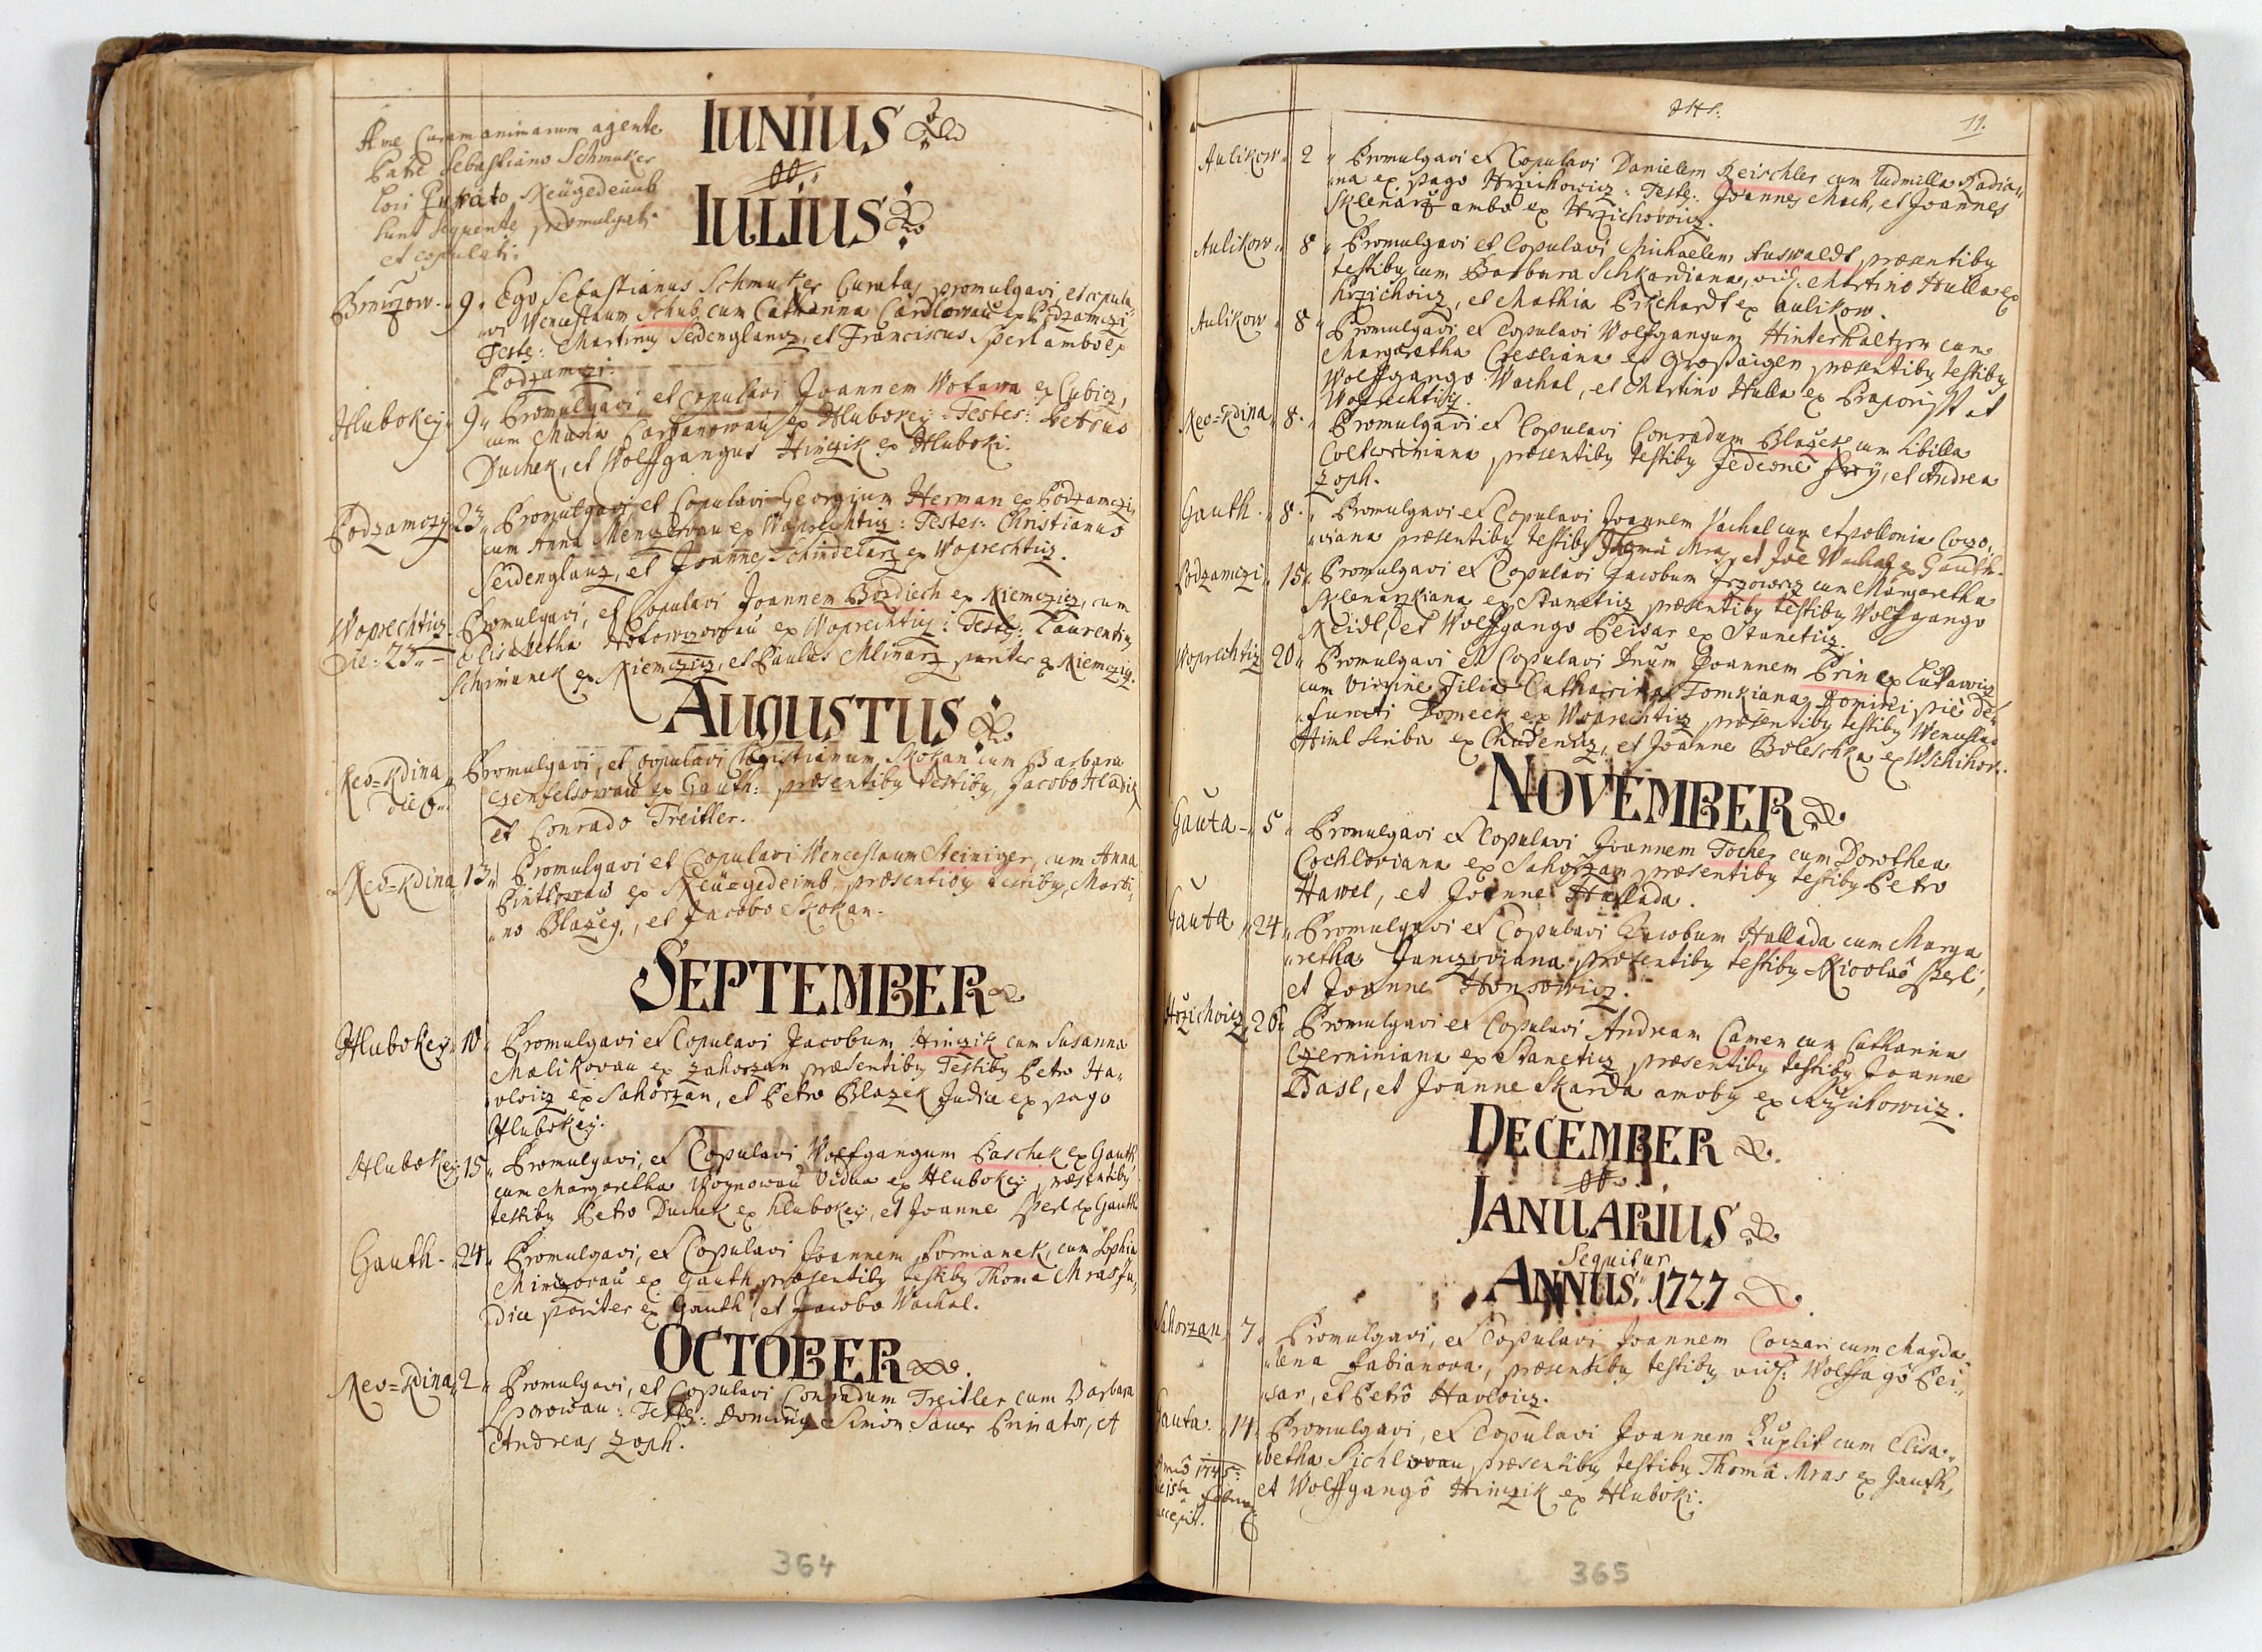 IUNIUS
A me Curam animarum agente
Patre Sebastiano Schmuker
loci Curato Neügedeinb
sunt sequente promulgati
et copulati:
IULIUS
9. Ego Sebastianus Schmuker Curatus promulgavi, et copula
vi Wenceslaum Schub, cum Catharina Cardlowau ex Podzamczi
Testes: Martinus Seidenglanz, et Franciscus Perl ambo ex
Podzamczi.
Hlubokey 9 Promulgavi, et copulavi Joannem Wotawa ex Cubicz,
cum Maria ex Hlubokey: Testes: Petrus
Duchek, et Wolffgangus Hinczik ex Hluboki.
Podzamczy 23 Promulgavi et Copulavi Georgium Herman ex Podzamczi,
cum Anna Menczerowau ex Woprechtiz: Testes: Christianus
Seidenglanz, et Joannes Schindelarz ex Woprechtiz.
Woprechtiz Promulgavi, et Copulavi Joannem Bozdiech ex Niemczicz, cum
Die: 23 Elisabetha ex Woprechticz: Testes: Laurentius
Schimanek ex Niemczicz, et Paulus Mlinarz pariter ex Niemczicz.
AUGUSTUS
Neo=Kdina Promulgavi, et copulavi Christianum Skokan cum Barbara
die 6 ex Gauth: præsentibus testibus, Jacobo Hladik
et Conrado Treitler.
Neo=Kdina 13 Promulgavi et Copulavi Wenceslaum Steiniger, cum Anna
ex Neü=gedeimb præsentibus testibus, Marti
no Blazeg, et Jacobo Skokan.
SEPTEMBER
Hlubokey 10 Promulgavi et Copulavi Jacobum Hinczik cum Susanna
Malikovau ex Zahorzan præsentibus Testibus Petro Ha
vlovicz ex Sahorzan, et Petro Blazek Judice ex pago
Hlubokey.
Hlubokey 15 Promulgavi, et Copulavi Wolffgangum Paschek ex Gauth,
cum Margaretha Wognowau Vidua ex Hlubokey præsentibus
testibus Petro Duchek ex Hlubokey, et Joanne Perl ex Gauth
Gauth - 24 Promulgavi, et Copulavi Joannem Formanek, cum Sophia
ex Gauth præsentibus testibus Thoma Mras Ju
dice pariter ex Gauth, et Jacobo Wachal.
OCTOBER
Neo=Kdina 2 Promulgavi, et Copulavi Conradum Treitler cum Barbara
Testes: Dominus Simon Sauer Primator, et
Andreas Zoph.
364
11.
Aulikow 2 Promulgavi et Copulavi Danielem Reischler cum Ludmilla Radia
na ex pago Hrzichowicz: Testes: Joannes Mach, et Joannes
Sklenarz ambo ex Hrzichowicz.
Aulikow 8 Promulgavi et Copulavi Michaelem Auswaldt præsentibus
testibus cum Barbara Schkardiana, vid. Martino Hulla ex
Hrzichovicz, et Mathia Prichardt ex Aulikow.
Aulikow 8 Promulgavi et Copulavi Wolfgangum Hinterhaltzrn cum
Margaretha Cresliana ex Grosaigen præsentibus testibus
Wolffgango Wachal, et Martino Hulla ex Praporischt et
Woprechticz.
Neo=Kdina 8. Promulgavi et Copulavi Conradum Blazek cum Sibilla
præsentibus testibus Jedeone et Andrea
Zoph.
Gauth 8. Promulgavi et Copulavi Joannem Wachal cum Apollonia
viana præsentibus testibus Thoma Mras, et Joe Wachal ex Gauth.
Podzamczi 15 Promulgavi et Copulavi Jacobum cum Margaretha
Sklenarzkiana ex Staneticz præsentibus testibus Wolffgango
Neidl, et Wolffgango Peisar ex Staneticz.
Woprechtiz 20 Promulgavi et Copulavi Dnum Joannem Prin ex Lukawicz
cum Virgine Filia Catharina Tomkiana, Domini pie de
functi Domeck ex Woprechticz præsentibus testibus Wenceslao
Himl Scriba ex Chudenicz, et Joanne Boleschka ex
NOVEMBER
Gauta - 5 Promulgavi et Copulavi Joannem Tocher cum Dorothea
Cochloviana ex Sahorzan præsentibus testibus Petro
Hawel, et Joanne Hallada.
Gauta 24 Promulgavi et Copulavi Jacobum Hallada cum Marga
retha Janczoviana præsentibus testibus Nicolao Perl,
et Joanne Honsowicz.
Hrzichovicz 26 Promulgavi et Copulavi Andream Camen cum Catharina
Czerniniana ex Staneticz præsentibus testibus Joanne
Basl, et Joanne Skarda amobus ex
DECEMBER
JANUARIUS
Sequitur
ANNUS, 1727
Sahorzan 7 Promulgavi, et Copulavi Joannem Coczari cum Magda
lena Fabianova, præsentibus testibus vid. Wolffgago Pei
sar, et Petro Havlovicz.
Gauta 14 Promulgavi, et Copulavi Joannem Kuplit cum Elisa
betha Sichlovau præsentibus testibus Thoma Mras ex Gauth,
et Wolffgango Hinczik ex Hluboki.
365